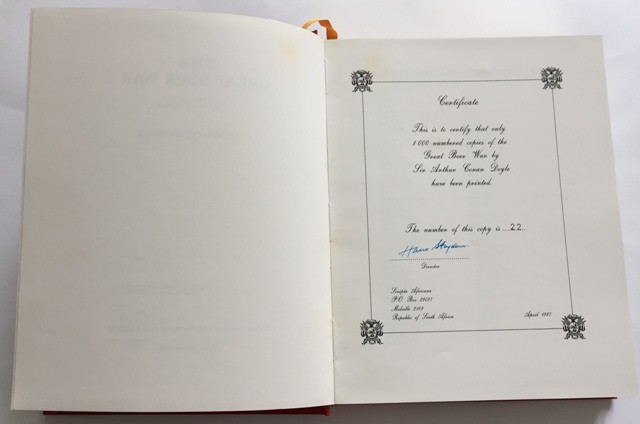 Certificate
This is to certify that only
1 000 numbered copies of the
Great Boer War by
Sir Arthur Conan Doyle
have been printed.
The number of this copy is ...22..
Director
Scripta Africana
P.O. Box
Melville 2109
Republic of South Africa
April 1987